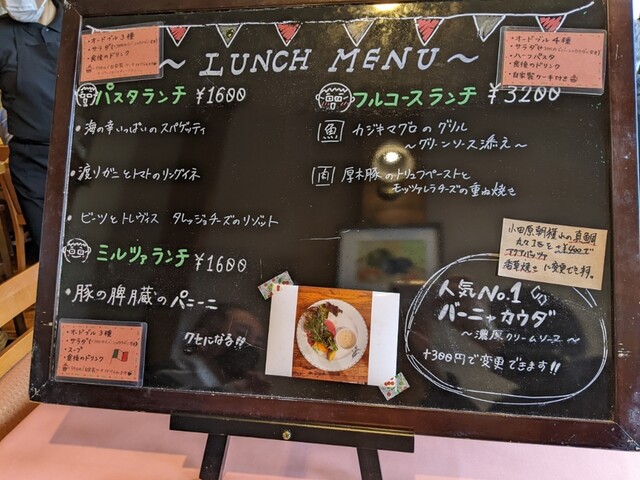 ・オードブル3種
・サラダ
・食後のドリンク
～LUNCH MENU～
・オードブル4種
・サラダ
・ハーフパスタ
・食後のドリンク
・自家製ケーキ付き
パスタランチ ¥1600
・海の幸いっぱいのスパゲッティ
・渡りガニとトマトのリングイネ
・ビーツとトレヴィス タレッジョチーズのリゾット
ミルツァランチ ¥1600
・豚の脾臓のパニーニ
クセになる!!
・オードブル3種
・サラダ
・スープ
・食後のドリンク
フルコースランチ ¥3200
魚 カジキマグロのグリル
～グリーンソース添え～
肉 厚木豚のトリュフペーストと
モッツァレラチーズの重ね焼き
小田原朝獲れの真鯛
丸々1匹を+¥400で
アクアパッツァ
香草焼きに変更できます。
人気No.1
バーニャカウダ
～濃厚クリームソース～
+300円で変更できます!!